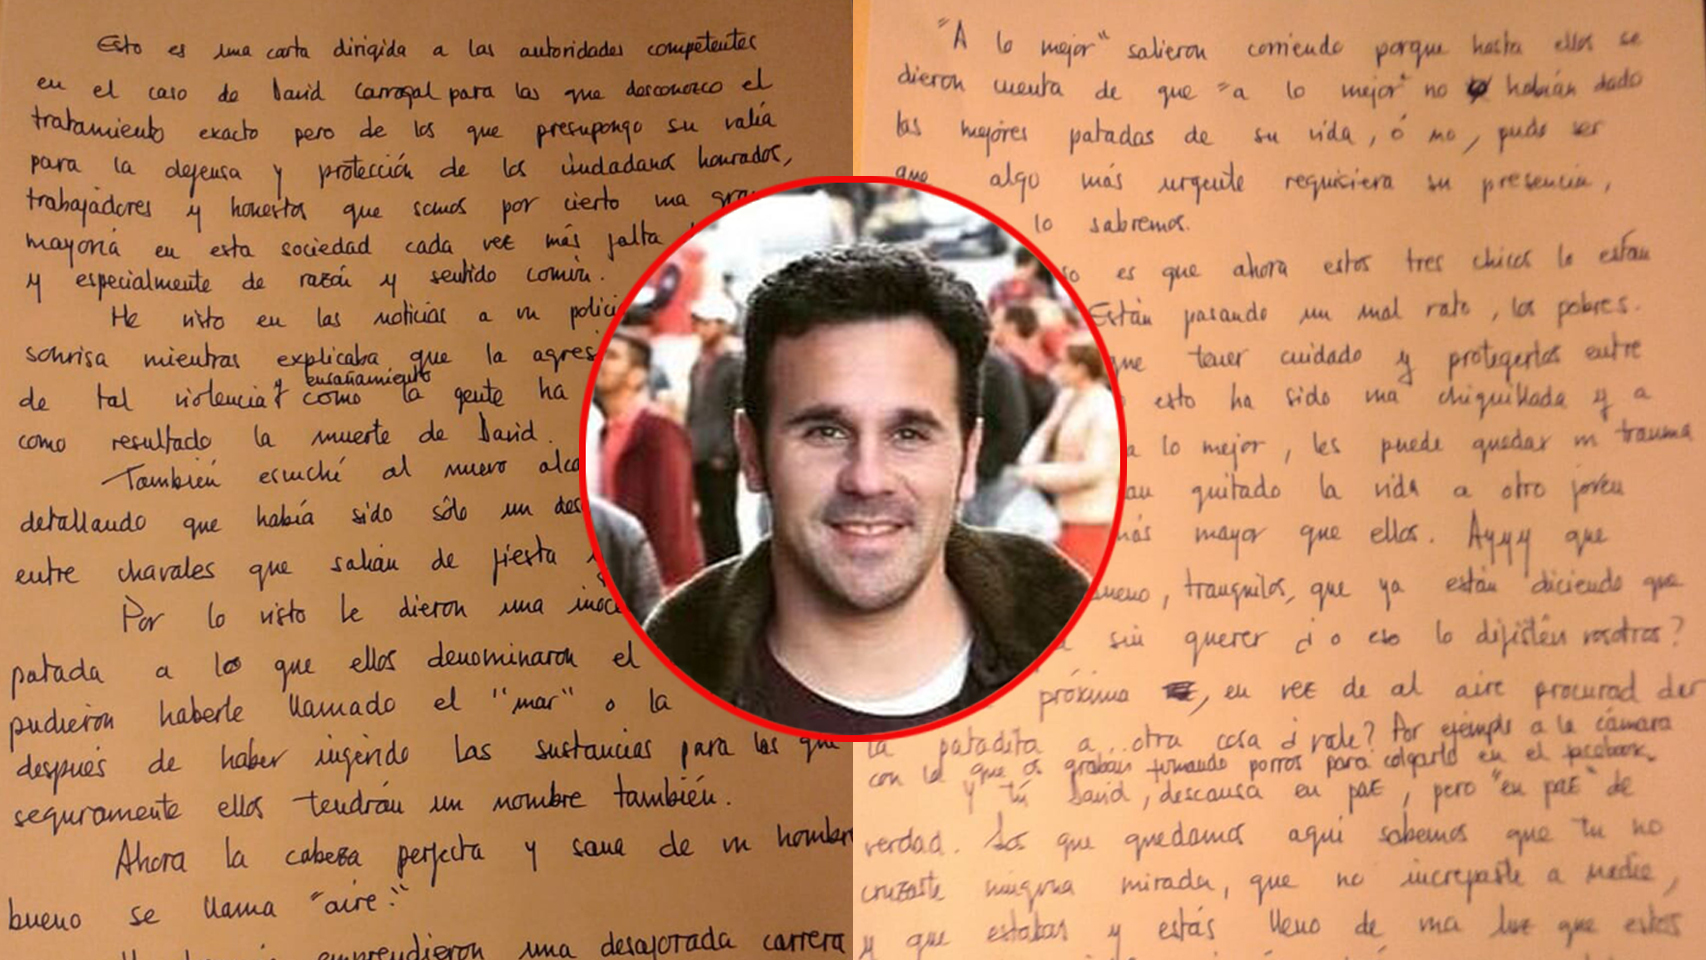 Esto es una carta dirigida a las autoridades competentes
en el caso de David Carragal para las que desconozco el
tratamiento exacto pero de los que presupongo su valía
para la defensa y protección de los ciudadanos honrados,
trabajadores y honestos que somos por cierto una gran
mayoría en esta sociedad cada vez más falta
y especialmente de razón y sentido común.
He visto en las noticias a un polici
sonrisa mientras explicaba que la agres
de tal violencia y ensañamiento como la gente ha
como resultado la muerte de David.
También escuché al nuevo alca
detallando que había sido sólo un des
entre chavales que salían de fiesta
Por lo visto le dieron una inoce
patada a lo que ellos denominaron el
pudieron haberle llamado el "mar" o la
después de haber ingerido las sustancias para las que
seguramente ellos tendrán un nombre también.
Ahora la cabeza perfecta y sana de un hombre
bueno se llama "aire".
emprendieron una desaforada carrera
"A lo mejor" salieron corriendo porque hasta ellos se
dieron cuenta de que "a lo mejor" no habían dado
las mejores patadas de su vida, ó no, pudo ser
que algo más urgente requiciera su presencia,
lo sabremos.
so es que ahora estos tres chicos lo están
Están pasando un mal rato, los pobres.
que tener cuidado y protegerlos entre
esto ha sido una chiquillada y a
a lo mejor, les puede quedar un trauma
an quitado la vida a otro joven
más mayor que ellos. Ayyy que
bueno, tranquilos, que ya están diciendo que
sin querer ¿o eso lo dijisteis vosotros?
próxima, en vez de al aire procurad dar
la patadita a otra cosa ¿vale? Por ejemplo a la cámara
con la que os graban fumando porros para colgarlo en el facebook.
y tú David, descansa en paz, pero "en paz" de
verdad. Los que quedamos aquí sabemos que tu no
cruzaste ninguna mirada, que no increpaste a nadie,
y que estabas y estás lleno de una luz que estos